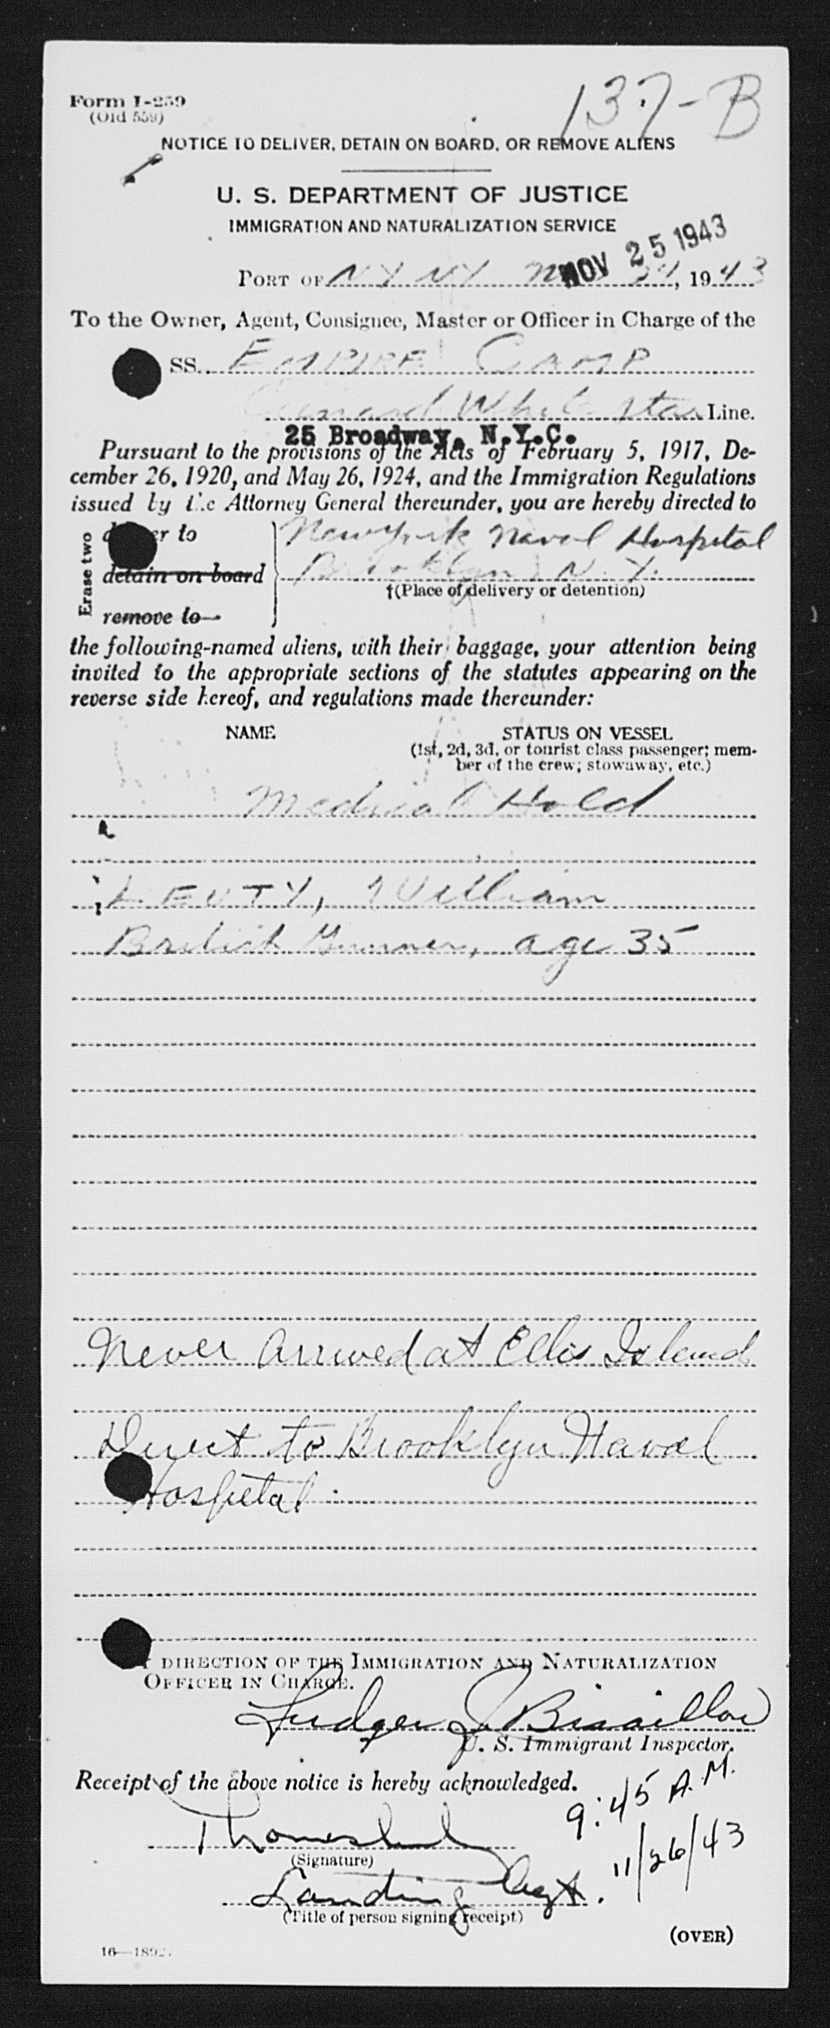 137-B
Form I-259
(Old 559)
NOTICE TO DELIVER, DETAIN ON BOARD, OR REMOVE ALIENS
U. S. DEPARTMENT OF JUSTICE
IMMIGRATION AND NATURALIZATION SERVICE
NOV 25 1943
PORT OF N Y N Y 24, 1943
To the Owner, Agent, Consignee, Master or Officer in Charge of the
SS. EMPIRE CAMP
Cunard White Star Line.
25 Broadway, N.Y.C.
Pursuant to the provisions of the Acts of February 5, 1917, De-
cember 26, 1920, and May 26, 1924, and the Immigration Regulations
issued by the Attorney General thereunder, you are hereby directed to
Erase two
to New York Naval Hospital
detain on board Brooklyn, N. Y.
†(Place of delivery or detention)
remove to
the following-named aliens, with their baggage, your attention being
invited to the appropriate sections of the statutes appearing on the
reverse side hereof, and regulations made thereunder:
NAME STATUS ON VESSEL
(1st, 2d, 3d, or tourist class passenger; mem-
ber of the crew; stowaway, etc.)
Medical Hold
LEUTY, William
British Gunner, age 35
Never Arrived at Ellis Island
Direct to Brooklyn Naval
Hospital.
DIRECTION OF THE IMMIGRATION AND NATURALIZATION
OFFICER IN CHARGE.
Ludger J. Bisaillon
U. S. Immigrant Inspector.
Receipt of the above notice is hereby acknowledged.
9:45 A.M.
11/26/43
(Signature)
Landing Agt.
(Title of person signing receipt)
(OVER)